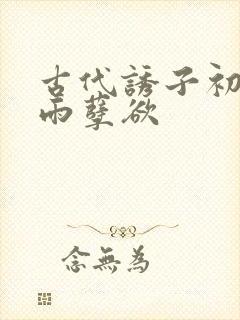 古代誘子初
雨孽欲
念無為